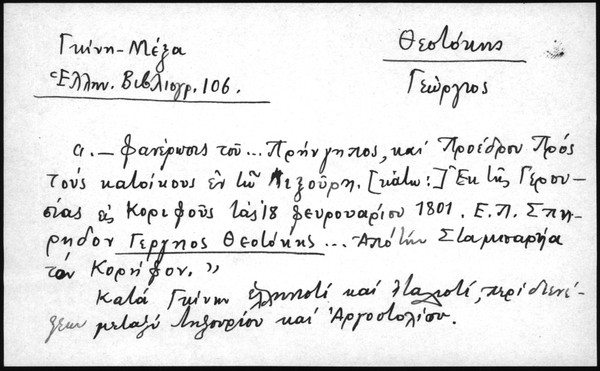 Γκίνη-Μέξα
Ἑλλην. Βιβλιογρ. 106.
Θεοτόκης
Γεώργιος
α.— Φανέρωσις τοῦ... Πρήνγηπος, καί Προέδρου Πρός
τούς κατοίκους ἐν τῶ Ληξοῦρη. [κάτω:] Ἐκ τῆς Γερου-
σίας εἰς Κοριφούς τάς 18 φευρουαρίου 1801. Ε.Π. Σπη-
ρηδον Γεργηος Θεοτόκης ... Ἀπό τήν Σταμπαρήα
τόν Κορήφον. "
Κατά Γκίνην ἑλληνιστί καί ἰταλιστί, περί διενέ-
ξεων μεταξύ Ληξουρίου καί Ἀργοστολίου.